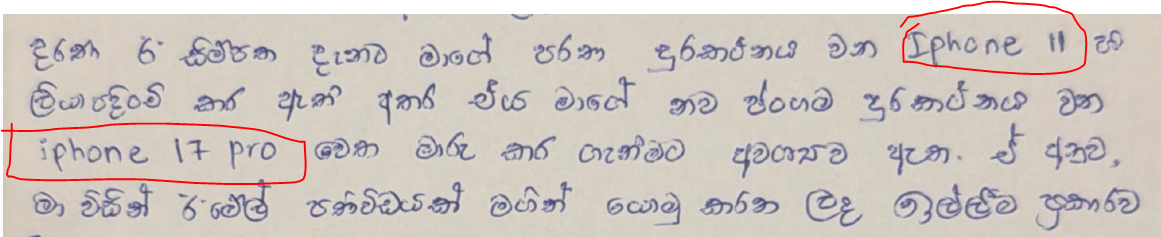 දරණ ඊ සිම්පත දැනට මාගේ පරණ දුරකථනය වන Iphone 11 හි
ලියාපදිංචි කර ඇති අතර එය මාගේ නව ජංගම දුරකථනය වන
iphone 17 pro වෙත මාරු කර ගැනීමට අවශ්‍යව ඇත. ඒ අනුව,
මා විසින් ඊමේල් පණිවිඩයක් මගින් යොමු කරන ලද ඉල්ලීම ප්‍රකාරව